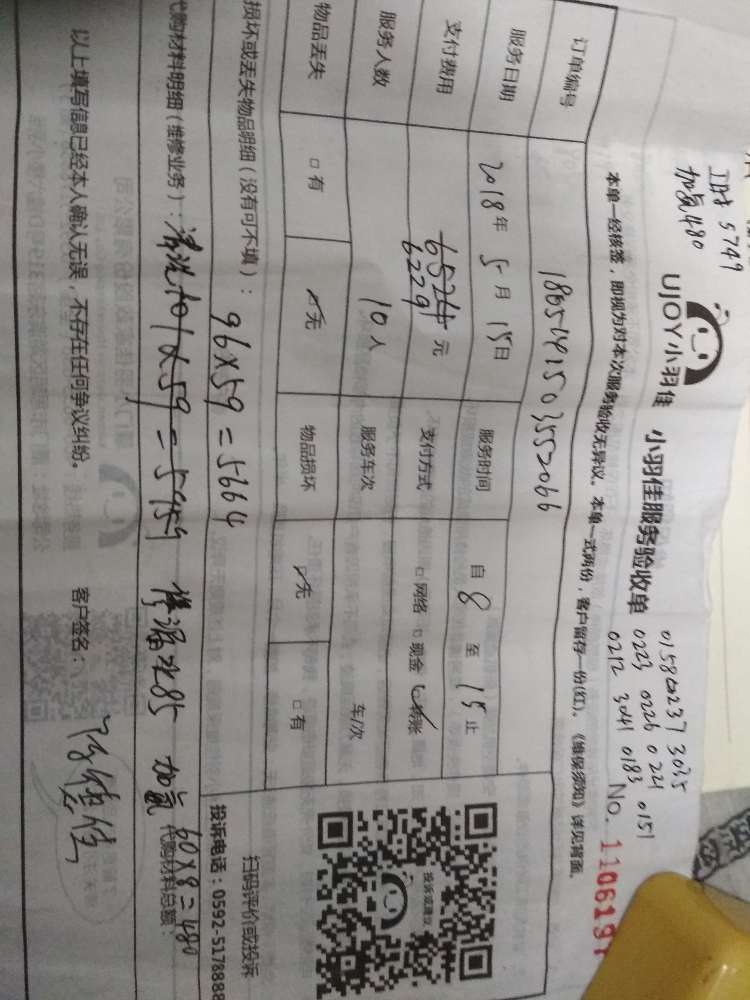 工时 5749
加氟480
UJOY小羽佳 小羽佳服务验收单
3035
0223 0226 0221 0151
0212 3041 0183
No. 110619
本单一经核签，即视为对本次服务验收无异议。本单一式两份，客户留存一份(红)。《维保须知》详见背面。
订单编号
服务日期 2018年 5月 15日 服务时间 自 8 至 15 止
支付费用 6229 元 支付方式 □网络 □现金 ☑转账
服务人数 10人 服务车次 车/次
物品丢失 □有 ☑无 物品损坏 ☑无 □有
损坏或丢失物品明细（没有可不填）：
96×59=5664
代购材料明细（维修业务）：清洗101×59=5959 修漏水85 加氟 60×8=480
代购材料总额：
以上填写信息已经本人确认无误，不存在任何争议纠纷。 客户签名：
投诉或建议
扫码评价或投诉
投诉电话：0592-5178888